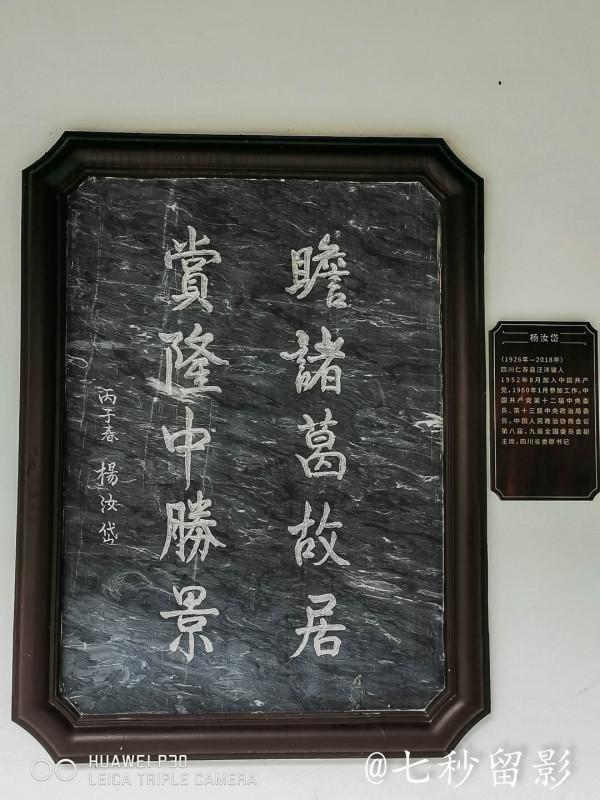 瞻諸葛故居
賞隆中勝景
丙子春 楊汝岱
杨汝岱
(1926年—2018年)
四川仁寿县汪洋镇人
1952年8月加入中国共产
党,1950年1月参加工作。中
国共产党第十二届中央委
员、第十三届中央政治局委
员,中国人民政治协商会议
第八届、九届全国委员会副
主席,四川省委原书记
HUAWEI P30
LEICA TRIPLE CAMERA
@七秒留影